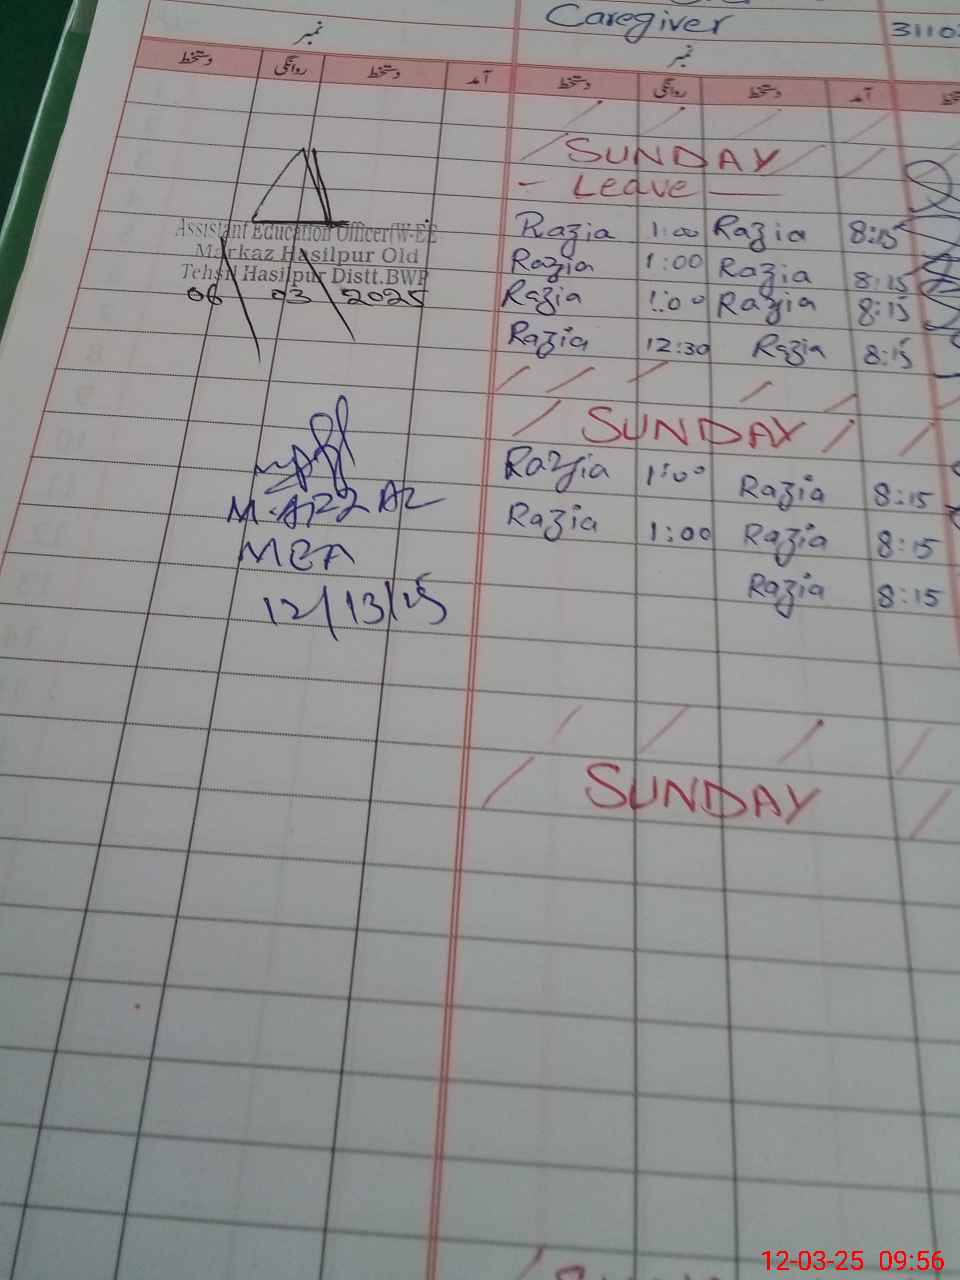 Caregiver 3110
نمبر نمبر
دستخط روانگی دستخط آمد دستخط روانگی دستخط آمد
SUNDAY
- Leave -
Razia 1:00 Razia 8:15
Razia 1:00 Razia 8:15
Razia 1:00 Razia 8:15
Razia 12:30 Razia 8:15
SUNDAY
Razia 1:00 Razia 8:15
Razia 1:00 Razia 8:15
Razia 8:15
SUNDAY
Assistant Education Officer(W-EE
Markaz Hasilpur Old
Tehsil Hasilpur Distt.BWP
06 03 2025
MEA
12/13/25
12-03-25 09:56